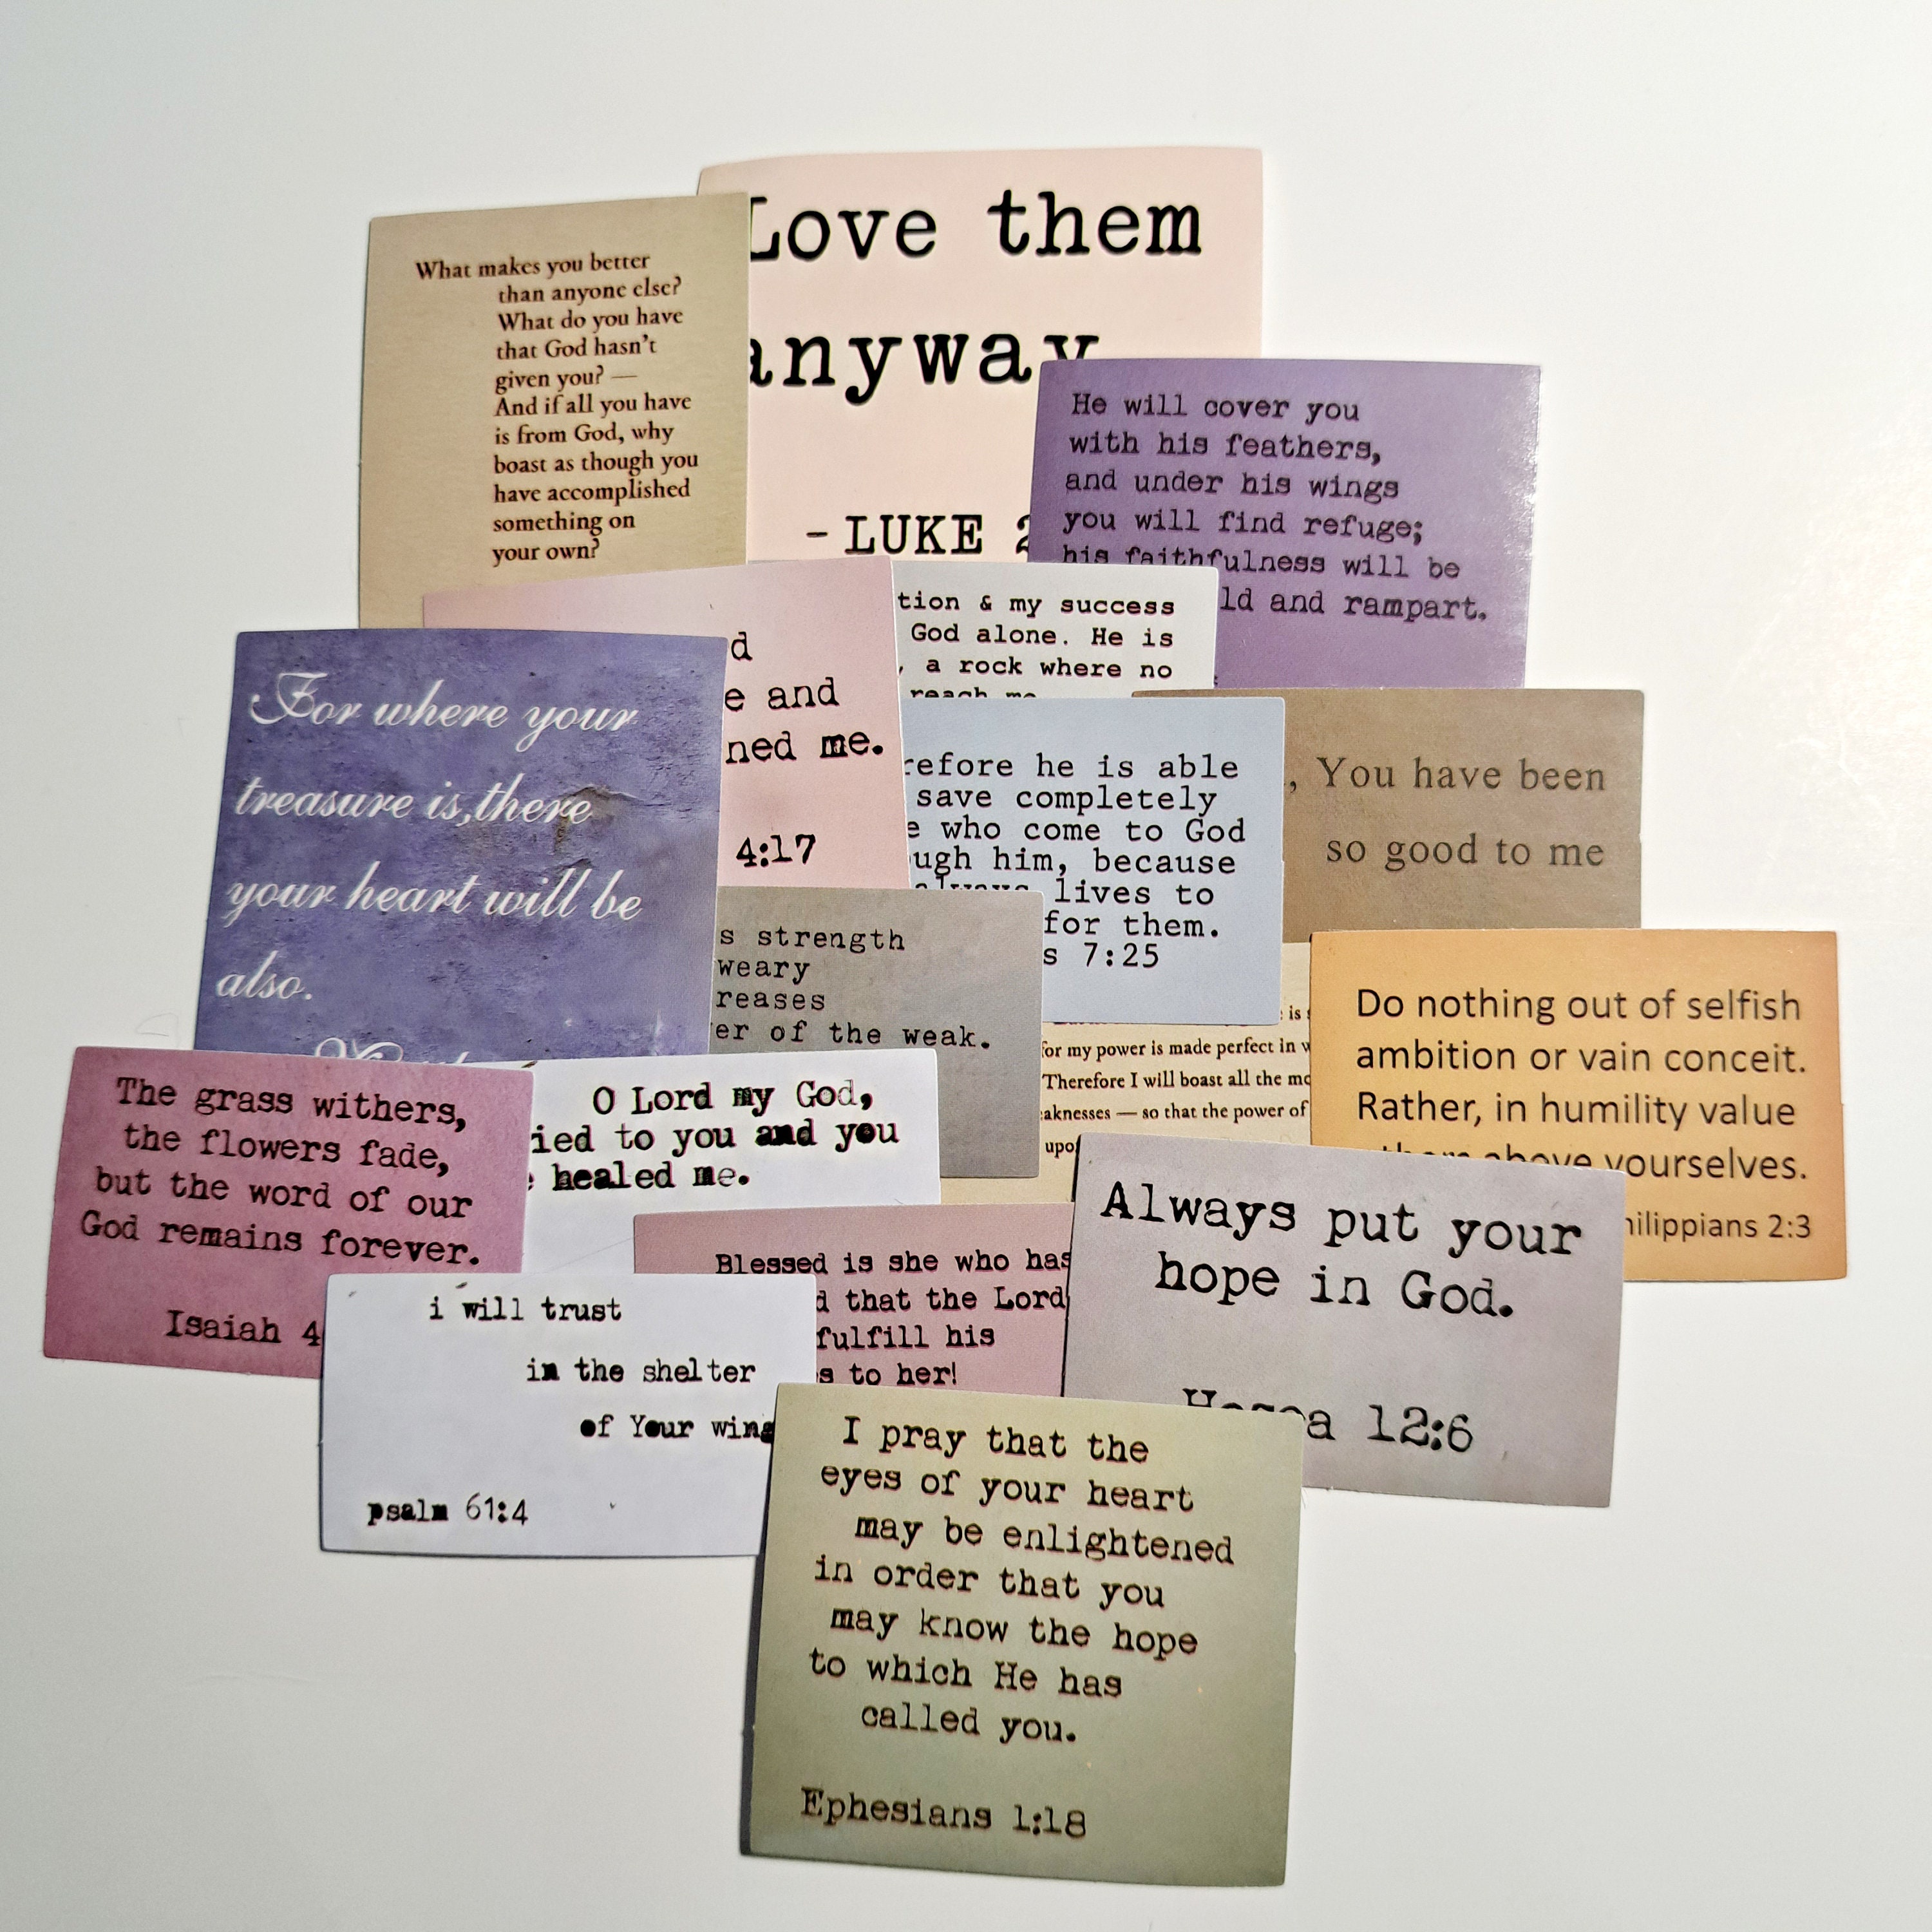 What makes you better
than anyone else?
What do you have
that God hasn't
given you? —
And if all you have
is from God, why
boast as though you
have accomplished
something on
your own?
Love them
anyway
-LUKE 2
He will cover you
with his feathers,
and under his wings
you will find refuge;
his faithfulness will be
ld and rampart.
tion & my success
God alone. He is
, a rock where no
reach me
d
e and
ned me.
4:17
For where your
treasure is, there
your heart will be
also.
refore he is able
save completely
e who come to God
ugh him, because
always lives to
for them.
s 7:25
, You have been
so good to me
s strength
weary
reases
er of the weak.
is s
for my power is made perfect in w
Therefore I will boast all the mo
aknesses — so that the power of
upo
Do nothing out of selfish
ambition or vain conceit.
Rather, in humility value
them above yourselves.
hilippians 2:3
The grass withers,
the flowers fade,
but the word of our
God remains forever.
Isaiah 4
O Lord my God,
ried to you and you
e healed me.
Blessed is she who has
d that the Lord
fulfill his
s to her!
Always put your
hope in God.
Hosea 12:6
i will trust
in the shelter
of Your wing
psalm 61:4
I pray that the
eyes of your heart
may be enlightened
in order that you
may know the hope
to which He has
called you.
Ephesians 1:18